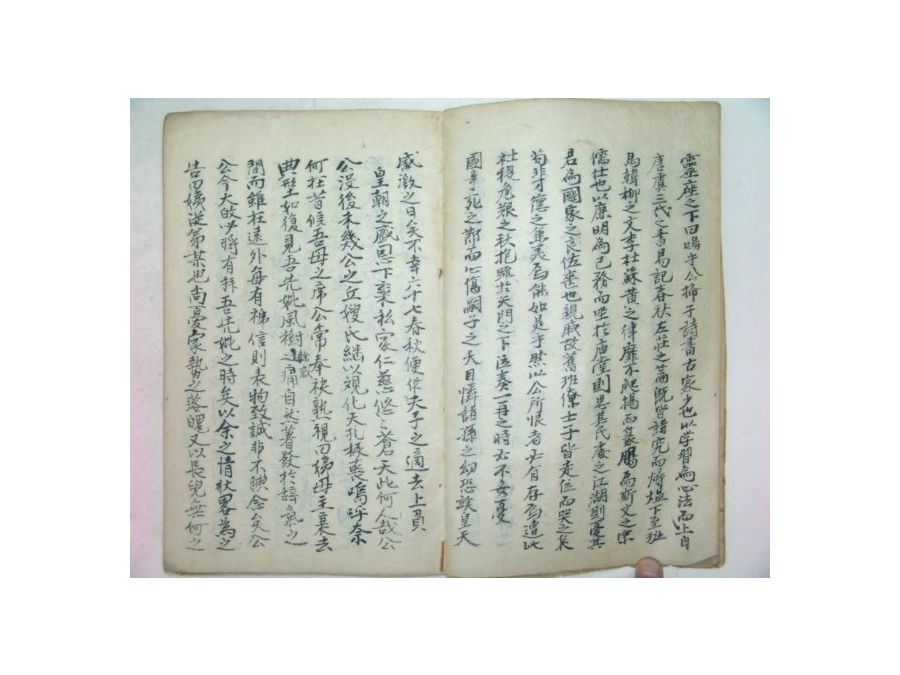 靈座之下曰嗚乎公稀子詩書古家也以学習爲心法而上自
唐虞三代之書易記春秋左莊之篇既皆講究而下至班
馬韓柳之文李杜蘇黃之律靡不爬楊而爲斯文之宗
儒仕也以廉明爲己務而坐於庙堂則思其民處之江湖則憂其
君爲國家之良佐世也親戚故舊班僚士子皆走位而哭之矣
苟非才德之兼美焉能如是乎然以公所恨者必有存焉遭此
社稷危艱之秋抱疏於天門之下医奏一再之時亦不安憂
國手死之際而心傷嗣子之夭目憐諸孫之幼恐誤皇天
感激之日矣不幸六十七春秋便作夫子之適去上負
皇朝之盛恩下棄私家仁慈悠悠蒼天此何人哉公
公沒後未幾公之丘嫂氏繼以觀化天孔極喪嗚呼奈
何在昔候吾母之席公常奉袂熟視曰娣母主衰去
典型土如復見吾先妣風樹餘感之痛自然著發於辞氣之
間而雖在遠外每有褫信則表物致誠非不腆念矣公
公今大故必將有拜吾先妣之時矣以余之情狀畧爲之
告曰娣從第某也尚憂家勢之落魄又以長兒無何之